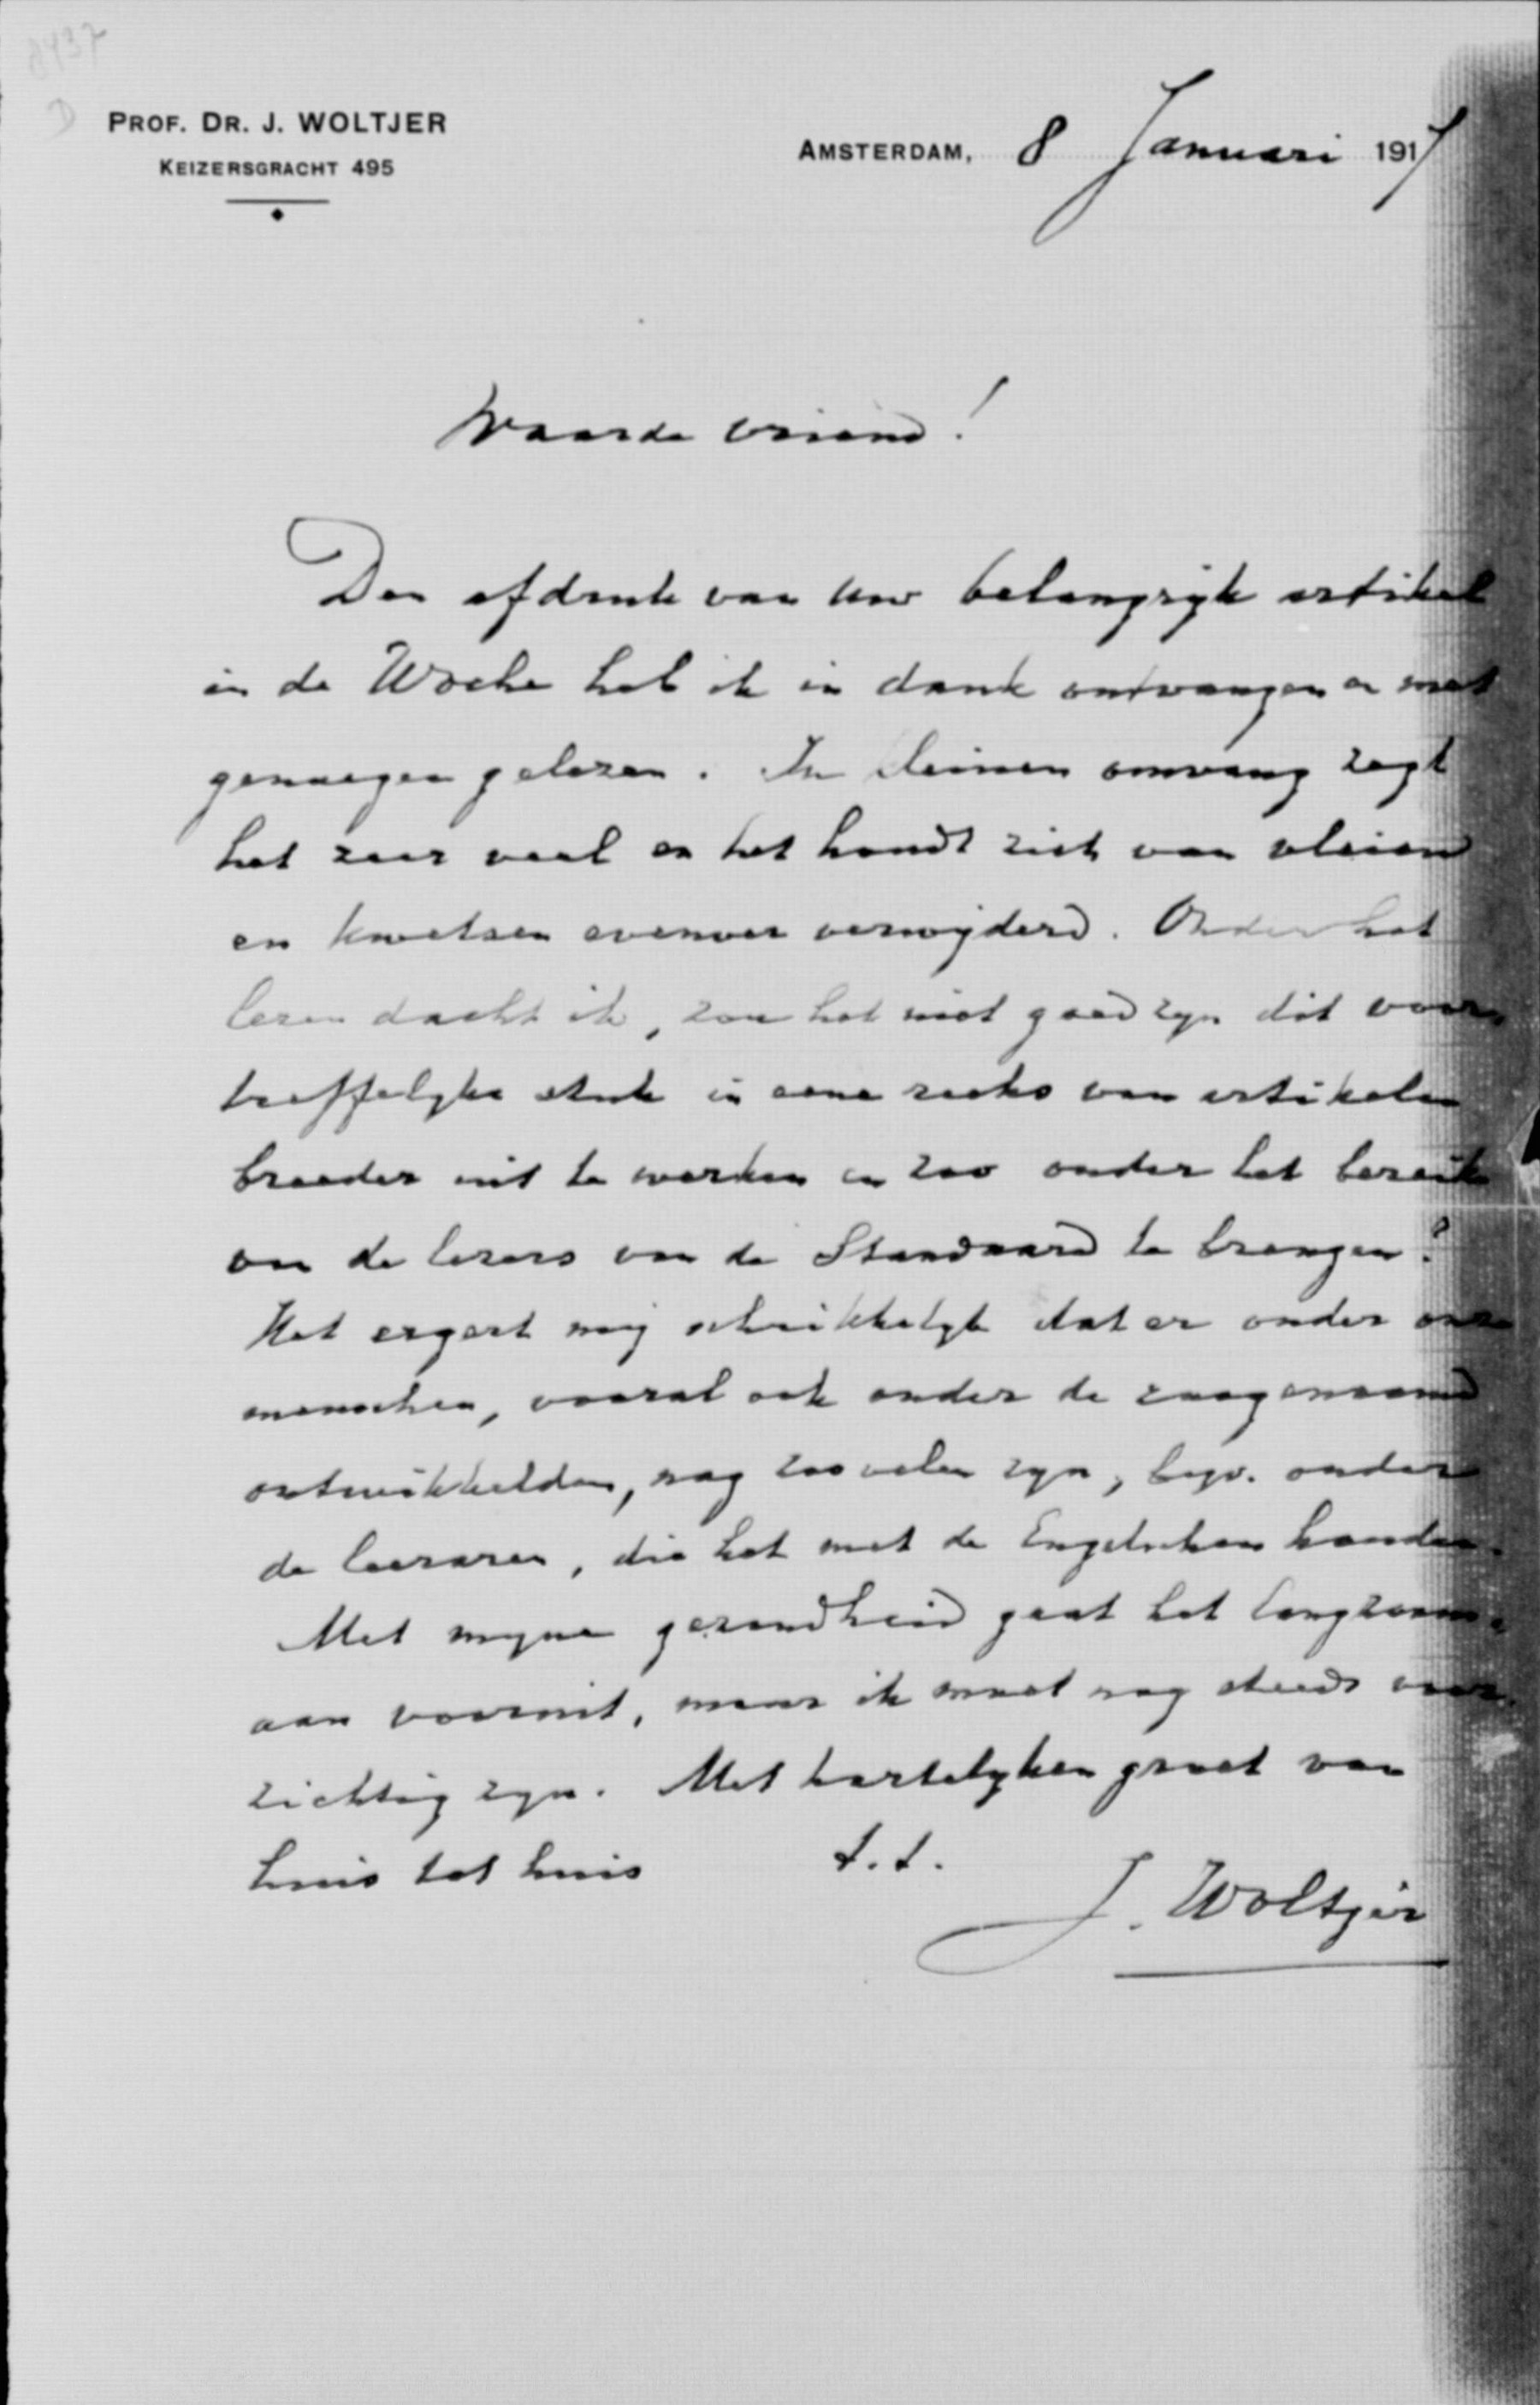 8437
D
PROF. DR. J. WOLTJER
KEIZERSGRACHT 495
AMSTERDAM, 8 Januari 1917
Waarde vriend!
Den afdruk van Uw belangrijk artikel
in de Woche heb ik in dank ontvangen en met
genoegen gelezen. In kleinen omvang zegt
het zeer veel en het houdt zich van vleien
en kwetsen evenver verwijderd. Onder het
lezen dacht ik, zou het niet goed zijn dit voor-
treffelijke stuk in eene reeks van artikelen
breeder uit te werken en zoo onder het bereik
van de lezers van de Standaard te brengen?
Het ergert mij schrikkelijk dat er onder onze
menschen, vooral ook onder de zoogenaamd
ontwikkelden, nog zoovelen zijn, bijv. onder
de leeraren, die het met de Engelschen houden.
Met mijne gezondheid gaat het langzaam-
aan vooruit, maar ik moet nog steeds voor-
zichtig zijn. Met hartelijken groet van
huis tot huis t.t.
J. Woltjer